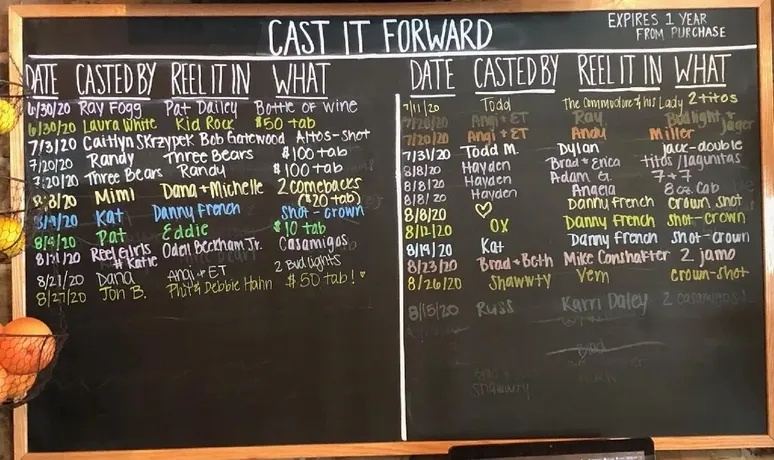 CAST IT FORWARD
EXPIRES 1 YEAR
FROM PURCHASE
DATE CASTED BY REEL IT IN WHAT
6/30/20 Ray Fogg Pat Dailey Bottle of wine
6/30/20 Laura White Kid Rock $50 tab
7/3/20 Caitlyn Skrzypek Bob Gatewood Altos-shot
7/20/20 Randy Three Bears $100 tab
7/20/20 Three Bears Randy $100 tab
8/20 Mimi Dana + Michelle 2 comebacks
($20 tab)
Kat Danny French shot-crown
Pat Eddie $10 tab
Reel Girls Odell Beckham Jr. Casamigos
# Katie
8/21/20 Dana Angi + ET 2 Bud lights
8/27/20 Jon B. Phil & Debbie Hahn $50 tab!
DATE CASTED BY REEL IT IN WHAT
7/11/20 Todd The Commodore & his Lady 2 titos
7/20/20 Angi + ET Ray Bud light + Jager
7/20/20 Angi + ET Andy Miller
7/31/20 Todd M. Dylan jack-double
8/8/20 Hayden Brad + Erica titos/lagunitas
8/8/20 Hayden Adam G. 7+7
8/8/20 Hayden Angela 8oz. cab
8/8/20 ♡ Danny French crown shot
8/12/20 OX Danny French shot-crown
8/19/20 Kat Danny French shot-crown
8/23/20 Brad + Beth Mike Conshafter 2 jamo
8/26/20 Shawwty Vern crown-shot
8/15/20 Russ Karri Daley 2 casamigos
Shawwty